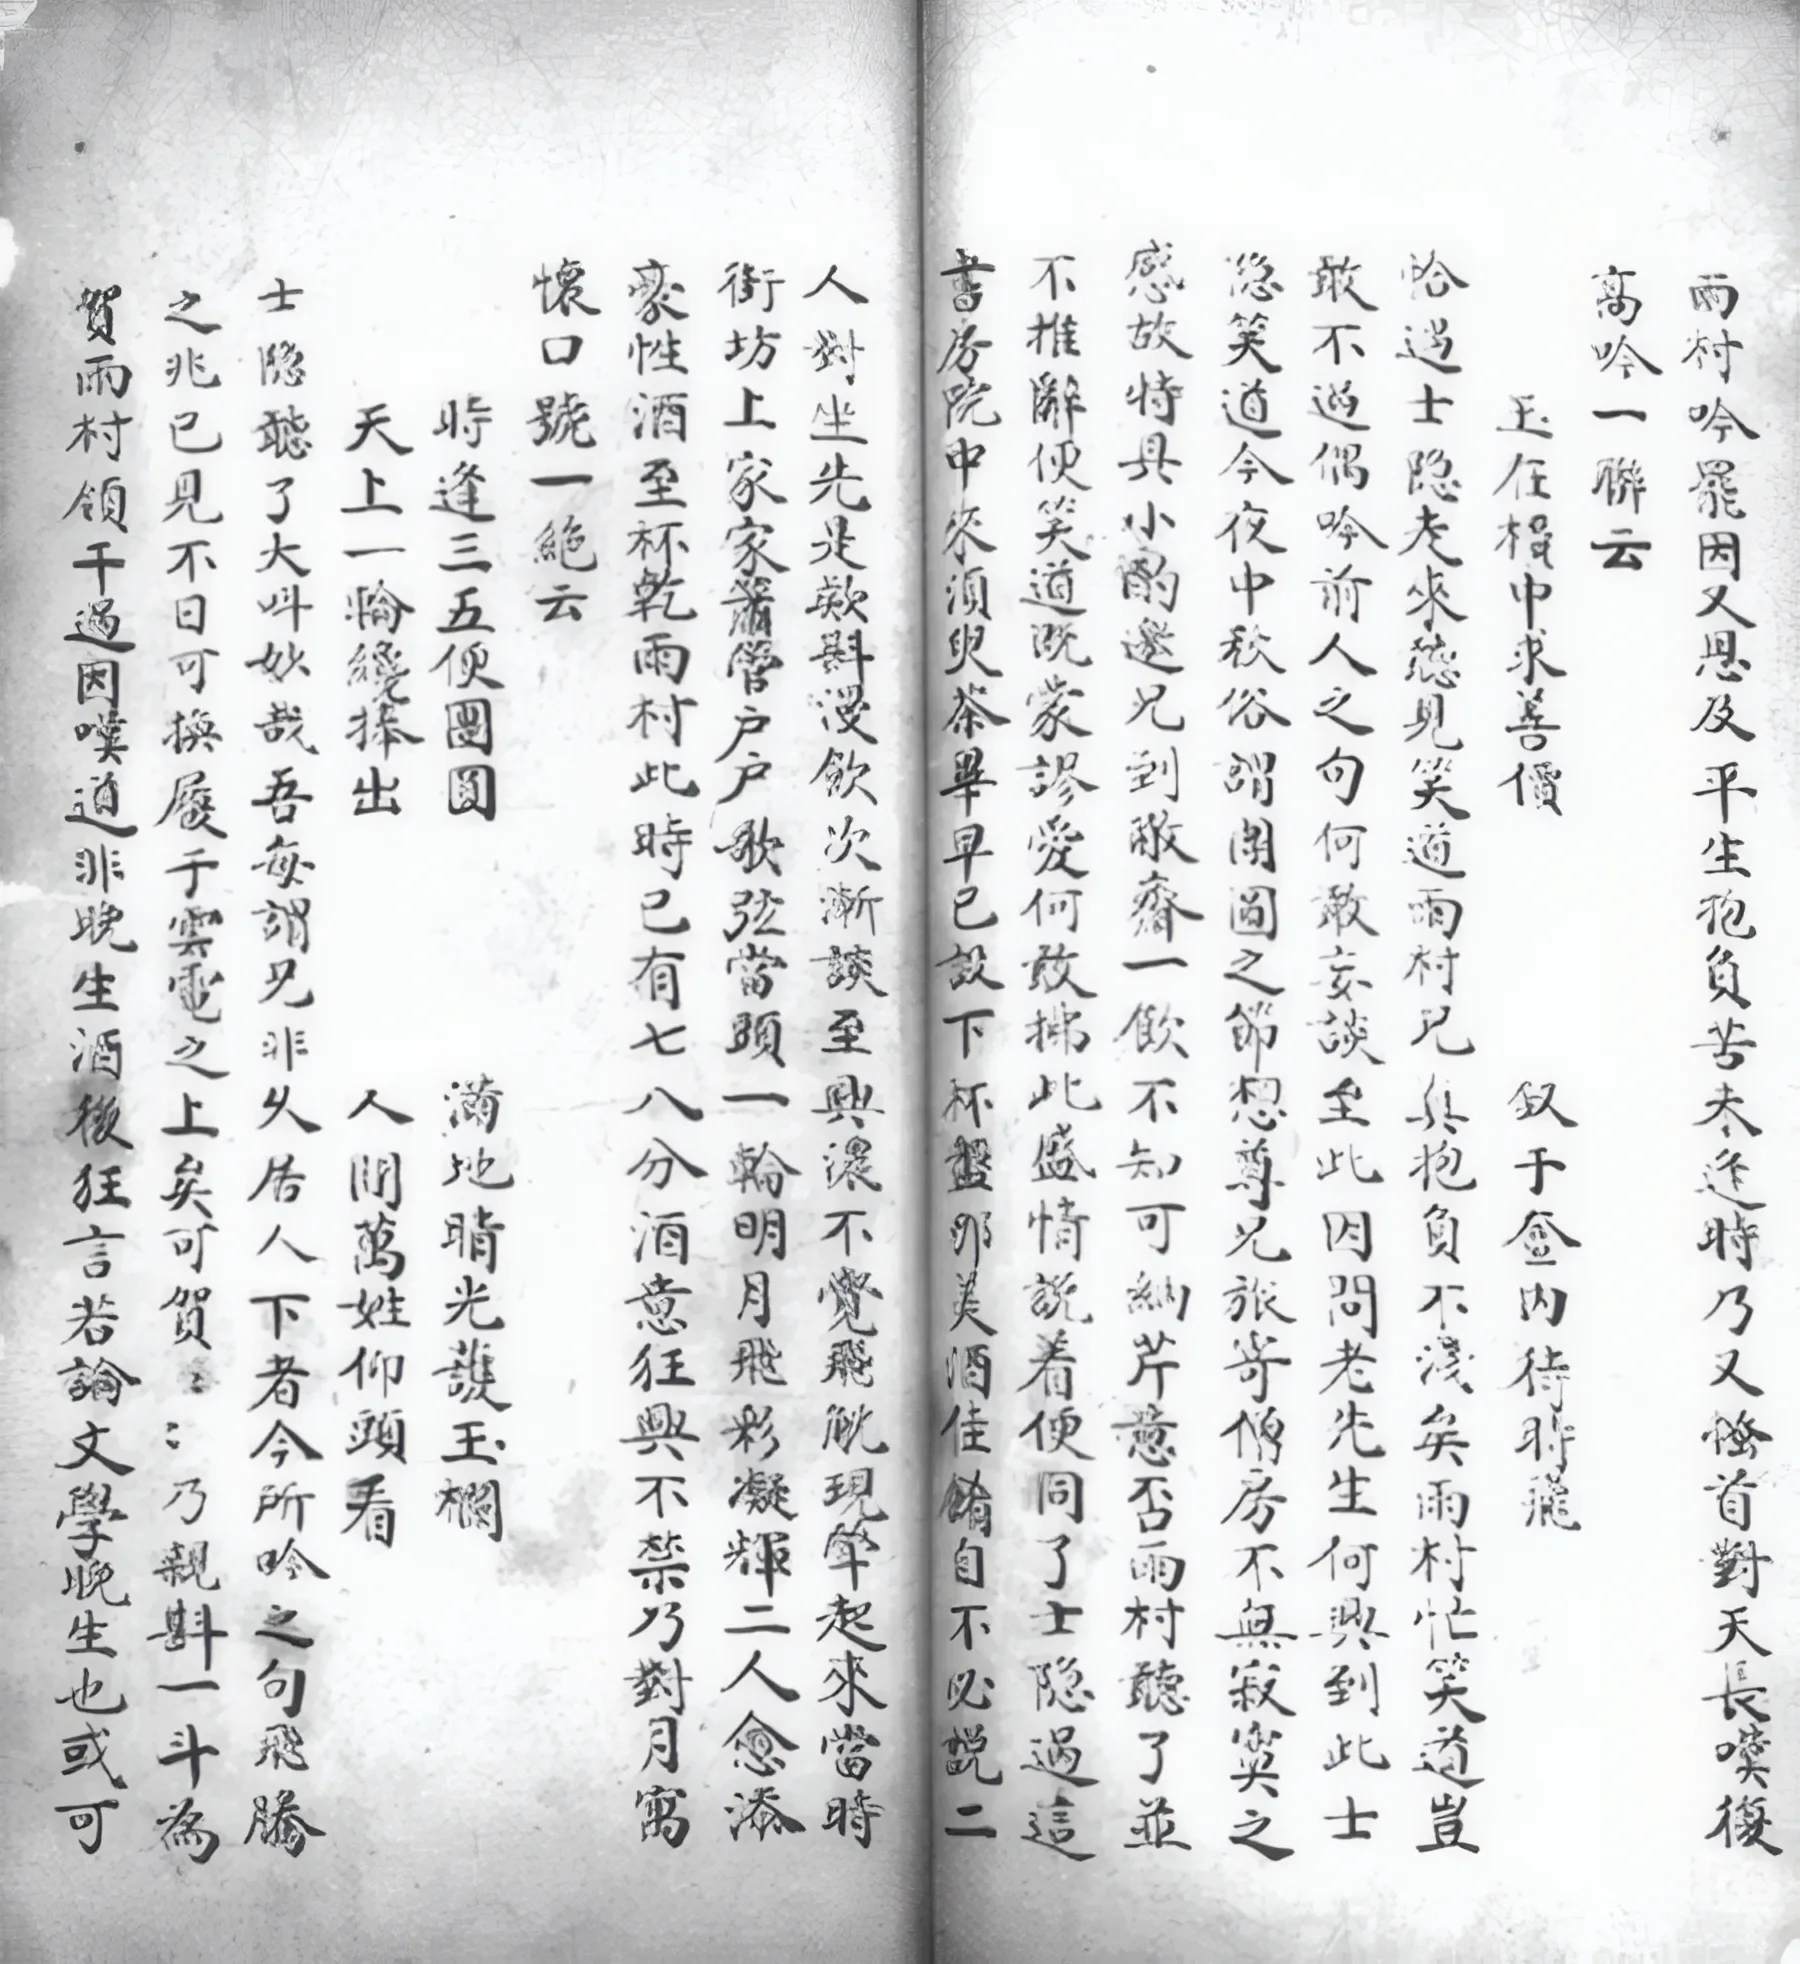 雨村吟罷因又思及平生抱負苦未逢時乃又搔首對天長嘆復
高吟一聯云
玉在櫝中求善價 釵于奩内待時飛
恰過士隐走來聽見笑道雨村兄真抱負不淺矣雨村忙笑道豈
敢不過偶吟前人之句何敢妄談至此因問老先生何興到此士
隐笑道今夜中秋俗謂團圓之節想尊兄旅寄僧房不無寂寞之
感故特具小酌邀兄到敝齋一飲不知可納芹意否雨村聽了並
不推辭便笑道既蒙謬愛何敢拂此盛情說着便同了士隐過這
書房院中來須臾茶畢早已設下杯盤那美酒佳餚自不必說二
人對坐先是款斟漫飲次漸談至興濃不覺飛觥現斝起來當時
街坊上家家簫管户户歌弦當頭一輪明月飛彩凝輝二人愈添
豪性酒至杯乾雨村此時已有七八分酒意狂興不禁乃對月寓
懷口號一絶云
時逢三五便團圓 滿地晴光護玉欄
天上一輪纔捧出 人間萬姓仰頭看
士隐聽了大叫妙哉吾每謂兄非久居人下者今所吟之句飛騰
之兆已見不日可換履于雲霓之上矣可賀ミミ乃親斟一斗為
賀雨村領干過因嘆道非晚生酒後狂言若論文學晚生也或可